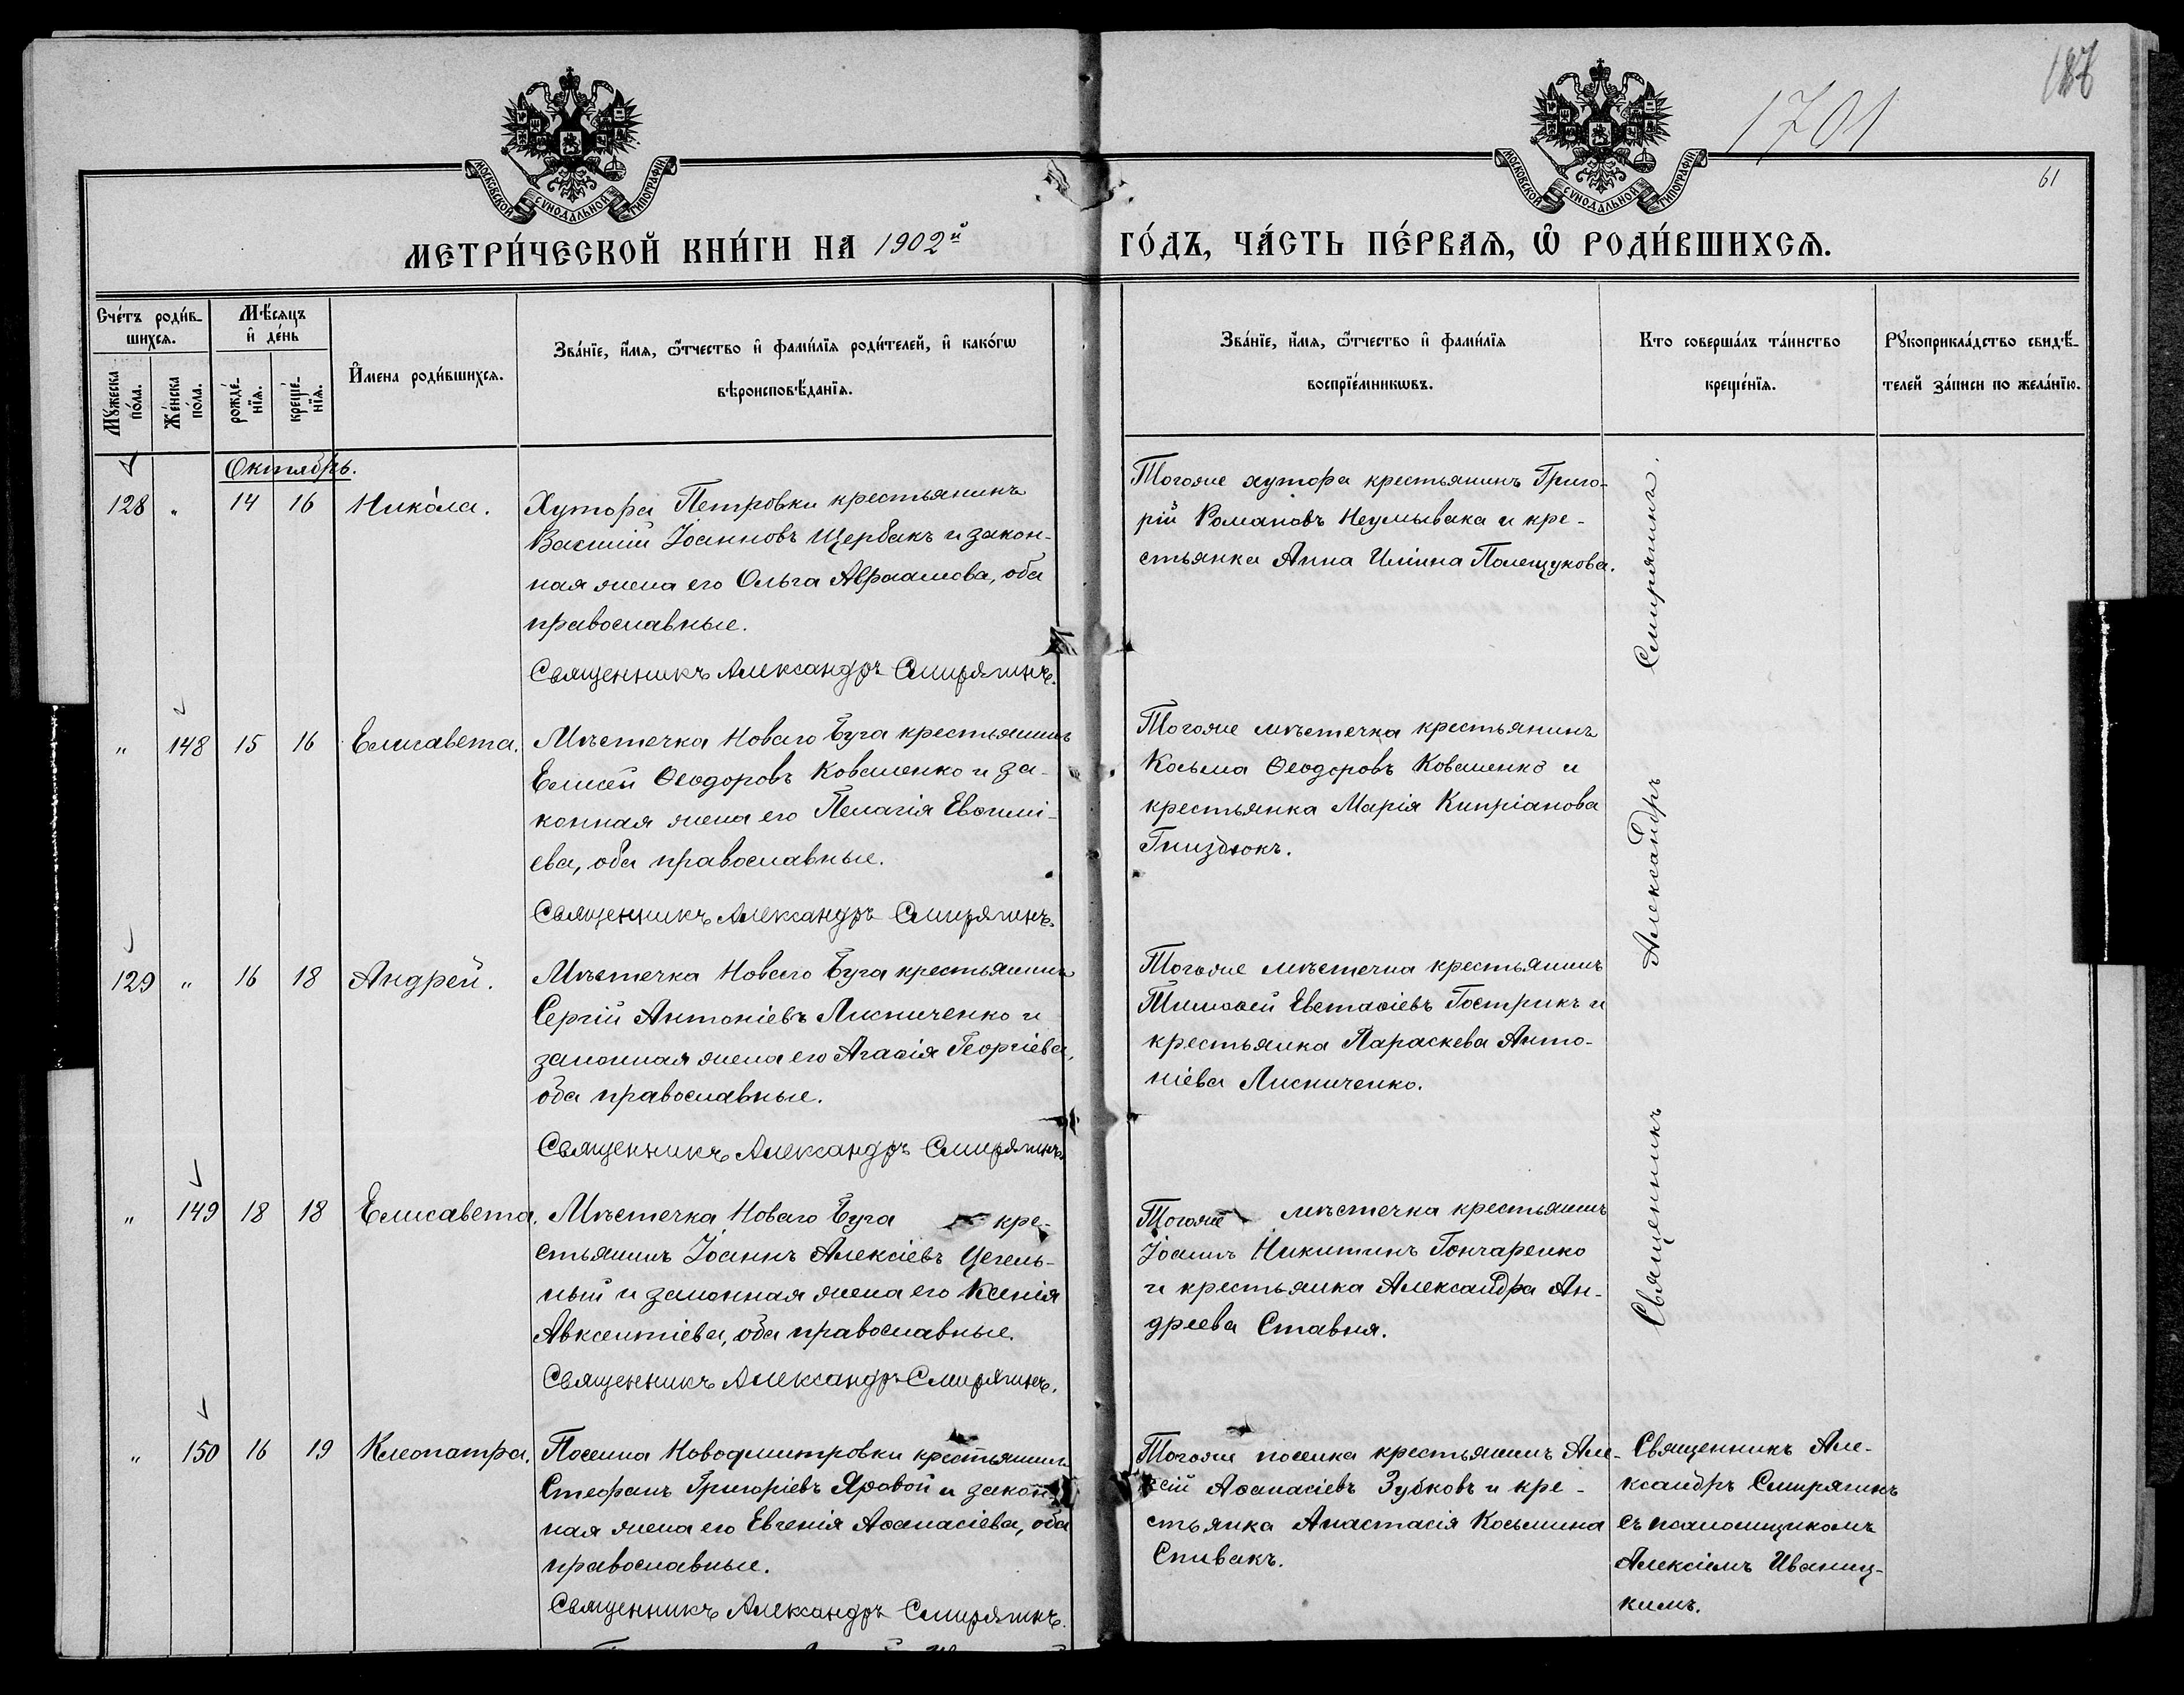 187
1701
61
МОСКОВСКОЙ СѴНОДАЛЬНОЙ ТИПОГРАФІИ.
МОСКОВСКОЙ СѴНОДАЛЬНОЙ ТИПОГРАФІИ.
МЕТРИ́ЧЕСКОЙ КНИ́ГИ НА 1902й
ГО́ДЪ, ЧА́СТЬ ПЕ́РВАѦ, Ѽ РОДИ́ВШИХСѦ.
Сче́тъ роди́в-
шихсѧ.
Мꙋ́жеска
по́ла.
Же́нска
по́ла.
Мѣ́сѧцъ
и҆ де́нь
рожде́-
нїѧ.
креще́-
нїѧ.
И҆мена роди́вшихсѧ.
Зва́нїе, и҆́мѧ, ѻ҆́тчество и҆ фами́лїѧ роди́телей, и҆ како́гѡ
вѣроисповѣ́данїѧ.
Зва́нїе, и҆́мѧ, ѻ҆́тчество и҆ фами́лїѧ
воспрїе́мникѡвъ.
Кто соверша́лъ та́инство
креще́нїѧ.
Рꙋкоприкла́дство свидѣ́-
телей за́писи по жела́нїю.
Октябрь.
128 " 14 16 Нико́ла.
Хутора Петровки крестьянинъ
Василій Іоанновъ Щербакъ и закон-
ная жена его Ольга Авраамова, оба
православные.
Священникъ Александръ Смирягинъ.
Тогоже хутора крестьянинъ Григо-
рій Романовъ Неумывака и кре-
стьянка Анна Иліина Полещукова.
" 148 15 16 Елисавета.
Мѣстечка Новаго Буга крестьянинъ
Елисей Ѳеодоровъ Коваленко и за-
конная жена его Пелагія Евѳимі-
ева, оба православные.
Священникъ Александръ Смирягинъ.
Тогоже мѣстечка крестьянинъ
Косьма Ѳеодоровъ Коваленко и
крестьянка Марія Кипріанова
Гниздюкъ.
129 " 16 18 Андрей.
Мѣстечка Новаго Буга крестьянинъ
Сергій Антоніевъ Лисниченко и
законная жена его Агаѳія Георгіева,
оба православные.
Священникъ Александръ Смирягинъ.
Тогоже мѣстечка крестьянинъ
Тимоѳей Евстаѳіевъ Гострикъ и
крестьянка Параскева Анто-
ніева Лисниченко.
" 149 18 18 Елисавета.
Мѣстечка Новаго Буга кре-
стьянинъ Іоаннъ Алексіевъ Цегель-
ный и законная жена его Ксенія
Авксентіева, оба православные.
Священникъ Александръ Смирягинъ.
Тогоже мѣстечка крестьянинъ
Іоаннъ Никитинъ Гончаренко
и крестьянка Александра Ан-
дреева Ставня.
Священникъ Александръ Смирягинъ.
" 150 16 19 Клеопатра.
Поселка Новодмитровки крестьянинъ
Стефанъ Григоріевъ Яровой и закон-
ная жена его Евгенія Аѳанасіева, оба
православные.
Священникъ Александръ Смирягинъ.
Тогоже поселка крестьянинъ Але-
ксій Аѳанасіевъ Зубковъ и кре-
стьянка Анастасія Косьмина
Спивакъ.
Священникъ Але-
ксандръ Смирягинъ
съ псаломщикомъ
Алексіемъ Иваниц-
кимъ.